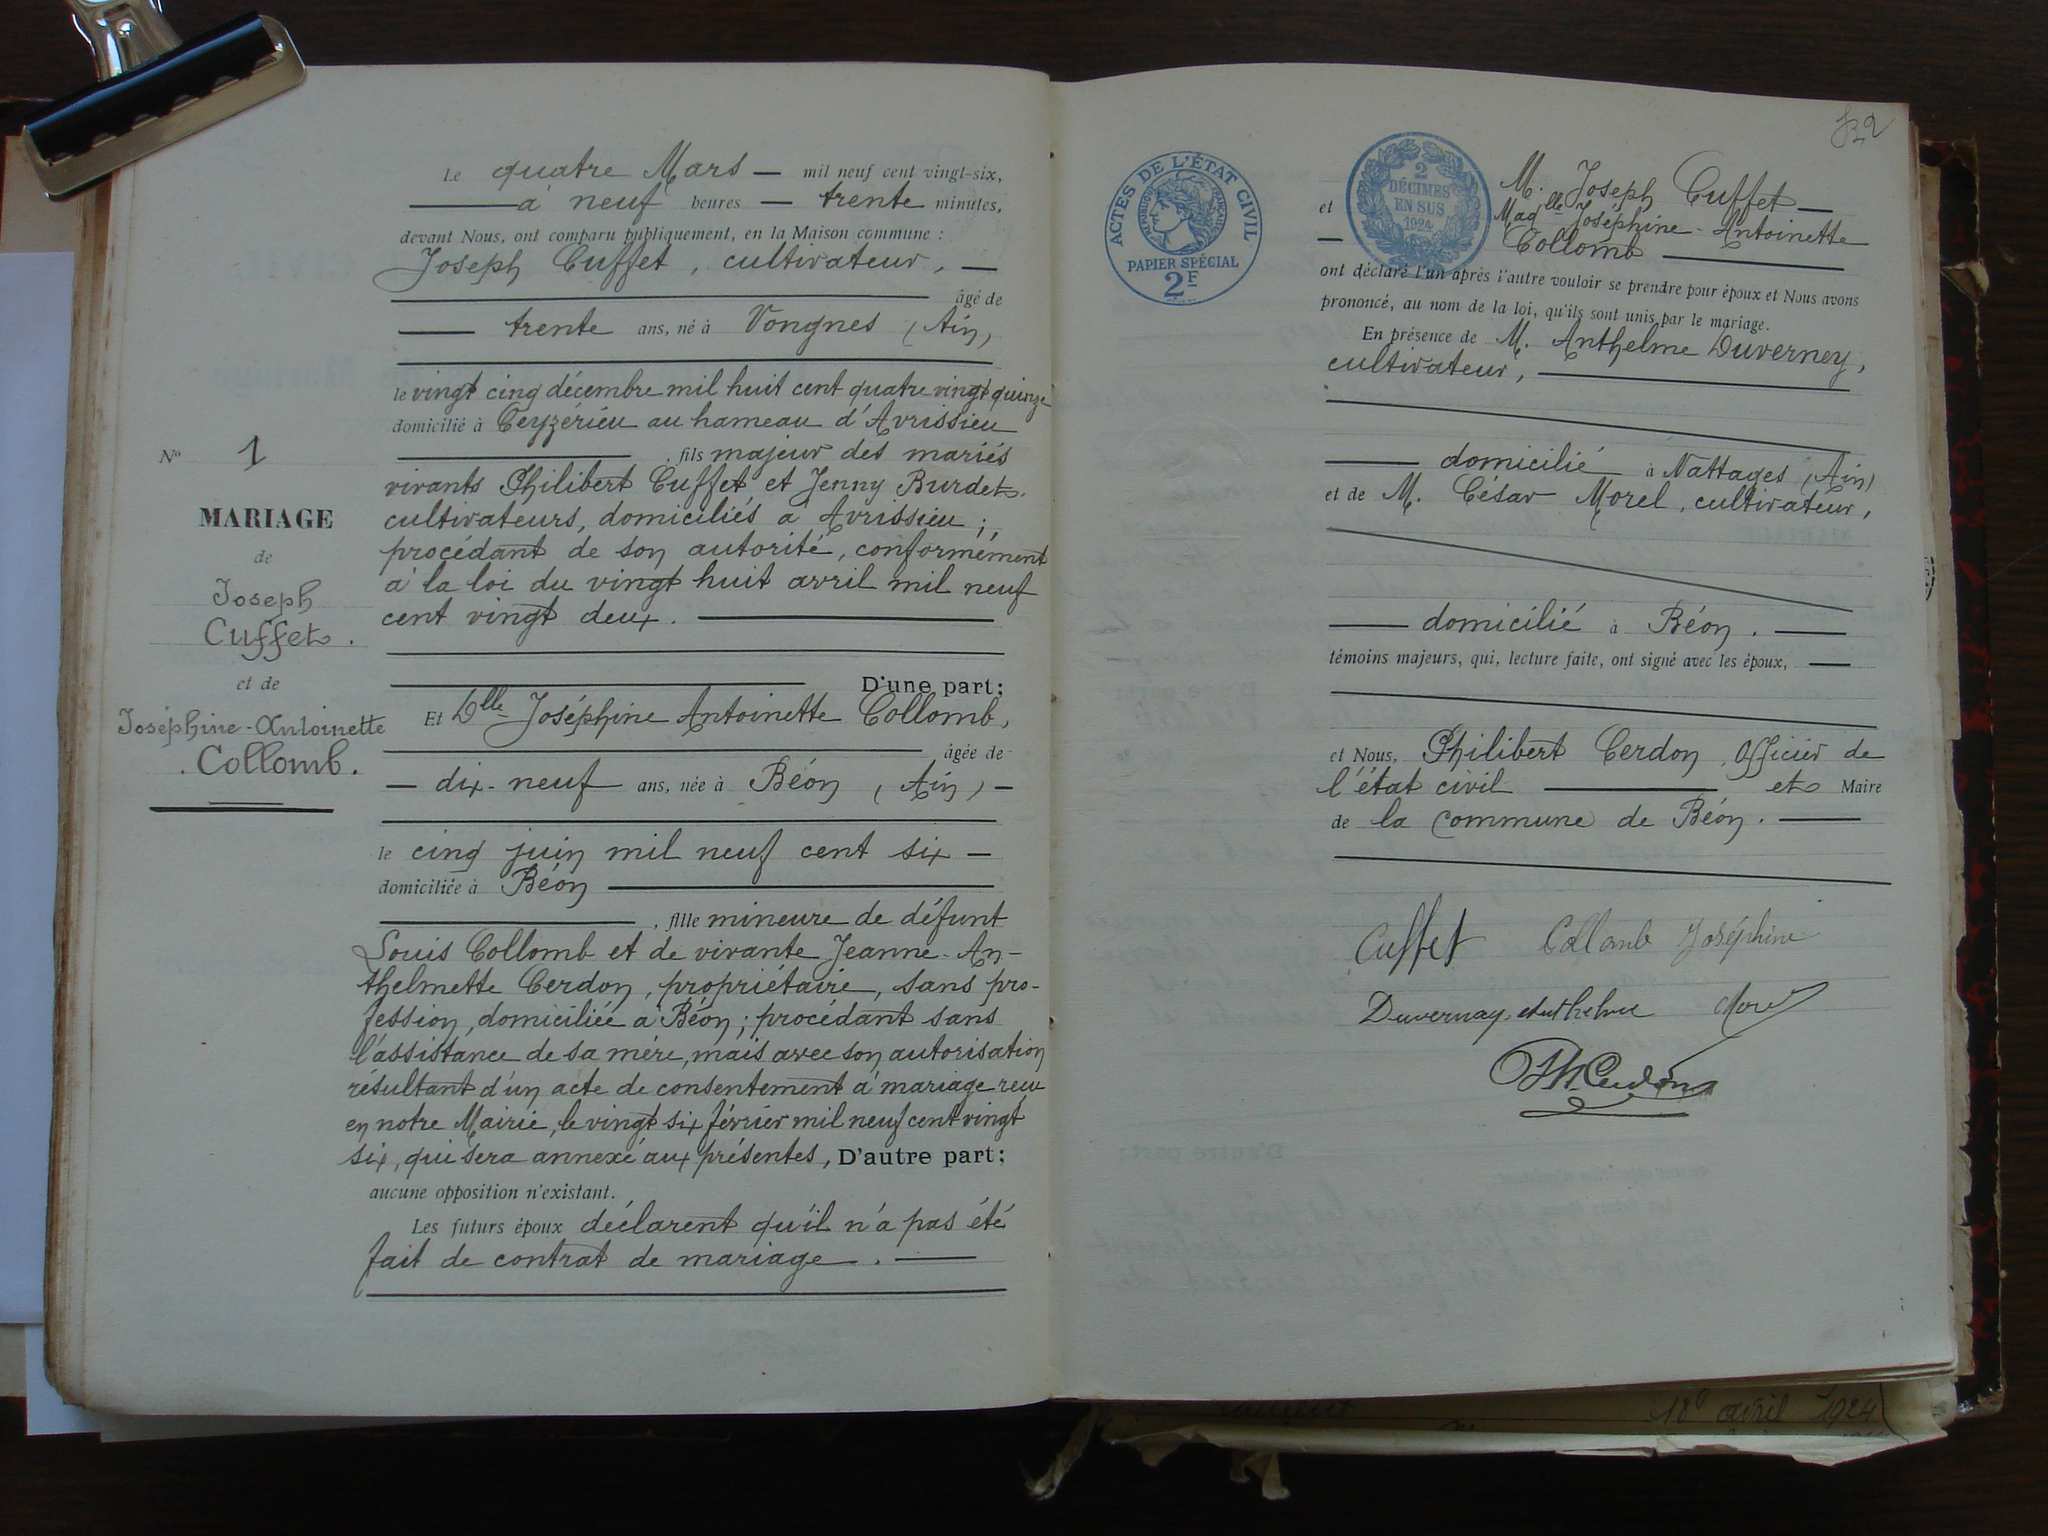 Le quatre Mars — mil neuf cent vingt-six,
à neuf heures — trente minutes,
devant Nous, ont comparu publiquement, en la Maison commune :
Joseph Cuffet, cultivateur, —
âgé de
trente ans, né à Vongnes (Ain)
le vingt cinq décembre mil huit cent quatre vingt quinze
domicilié à Ceyzérieu au hameau d'Avrissieu
, fils majeur des mariés
vivants Philibert Cuffet et Jenny Burdet.
cultivateurs, domiciliés à Avrissieu ;
procédant de son autorité, conformément
à la loi du vingt huit avril mil neuf
cent vingt deux.
D'une part :
Et Dlle Joséphine Antoinette Collomb,
âgée de
— dix-neuf ans, née à Béon (Ain) —
le cinq juin mil neuf cent six —
domiciliée à Béon
, fille mineure de défunt
Louis Collomb et de vivante Jeanne-An-
thelmette Cerdon, propriétaire, sans pro-
fession, domiciliée à Béon ; procédant sans
l'assistance de sa mère, mais avec son autorisation
résultant d'un acte de consentement à mariage reçu
en notre Mairie, le vingt six février mil neuf cent vingt
six, qui sera annexé aux présentes, D'autre part :
aucune opposition n'existant.
Les futurs époux déclarent qu'il n'a pas été
fait de contrat de mariage.
N° 1
MARIAGE
de
Joseph
Cuffet.
et de
Joséphine-Antoinette
. Collomb.
ACTES DE L'ÉTAT CIVIL
RÉPUBLIQUE FRANÇAISE
PAPIER SPÉCIAL
2F
2
DÉCIMES
EN SUS
1924
M. Joseph Cuffet —
et Madlle Joséphine-Antoinette
— Collomb
ont déclaré l'un après l'autre vouloir se prendre pour époux et Nous avons
prononcé, au nom de la loi, qu'ils sont unis par le mariage.
En présence de M. Anthelme Duverney,
cultivateur,
— domicilié à Nattages (Ain)
et de M. César Morel, cultivateur,
— domicilié à Béon. —
témoins majeurs, qui, lecture faite, ont signé avec les époux, —
et Nous, Philibert Cerdon, Officier de
l'état civil — et Maire
de la commune de Béon. —
Cuffet Collomb Joséphine
Duvernay Anthelme Morel
Ph Cerdon
18 avril 1924